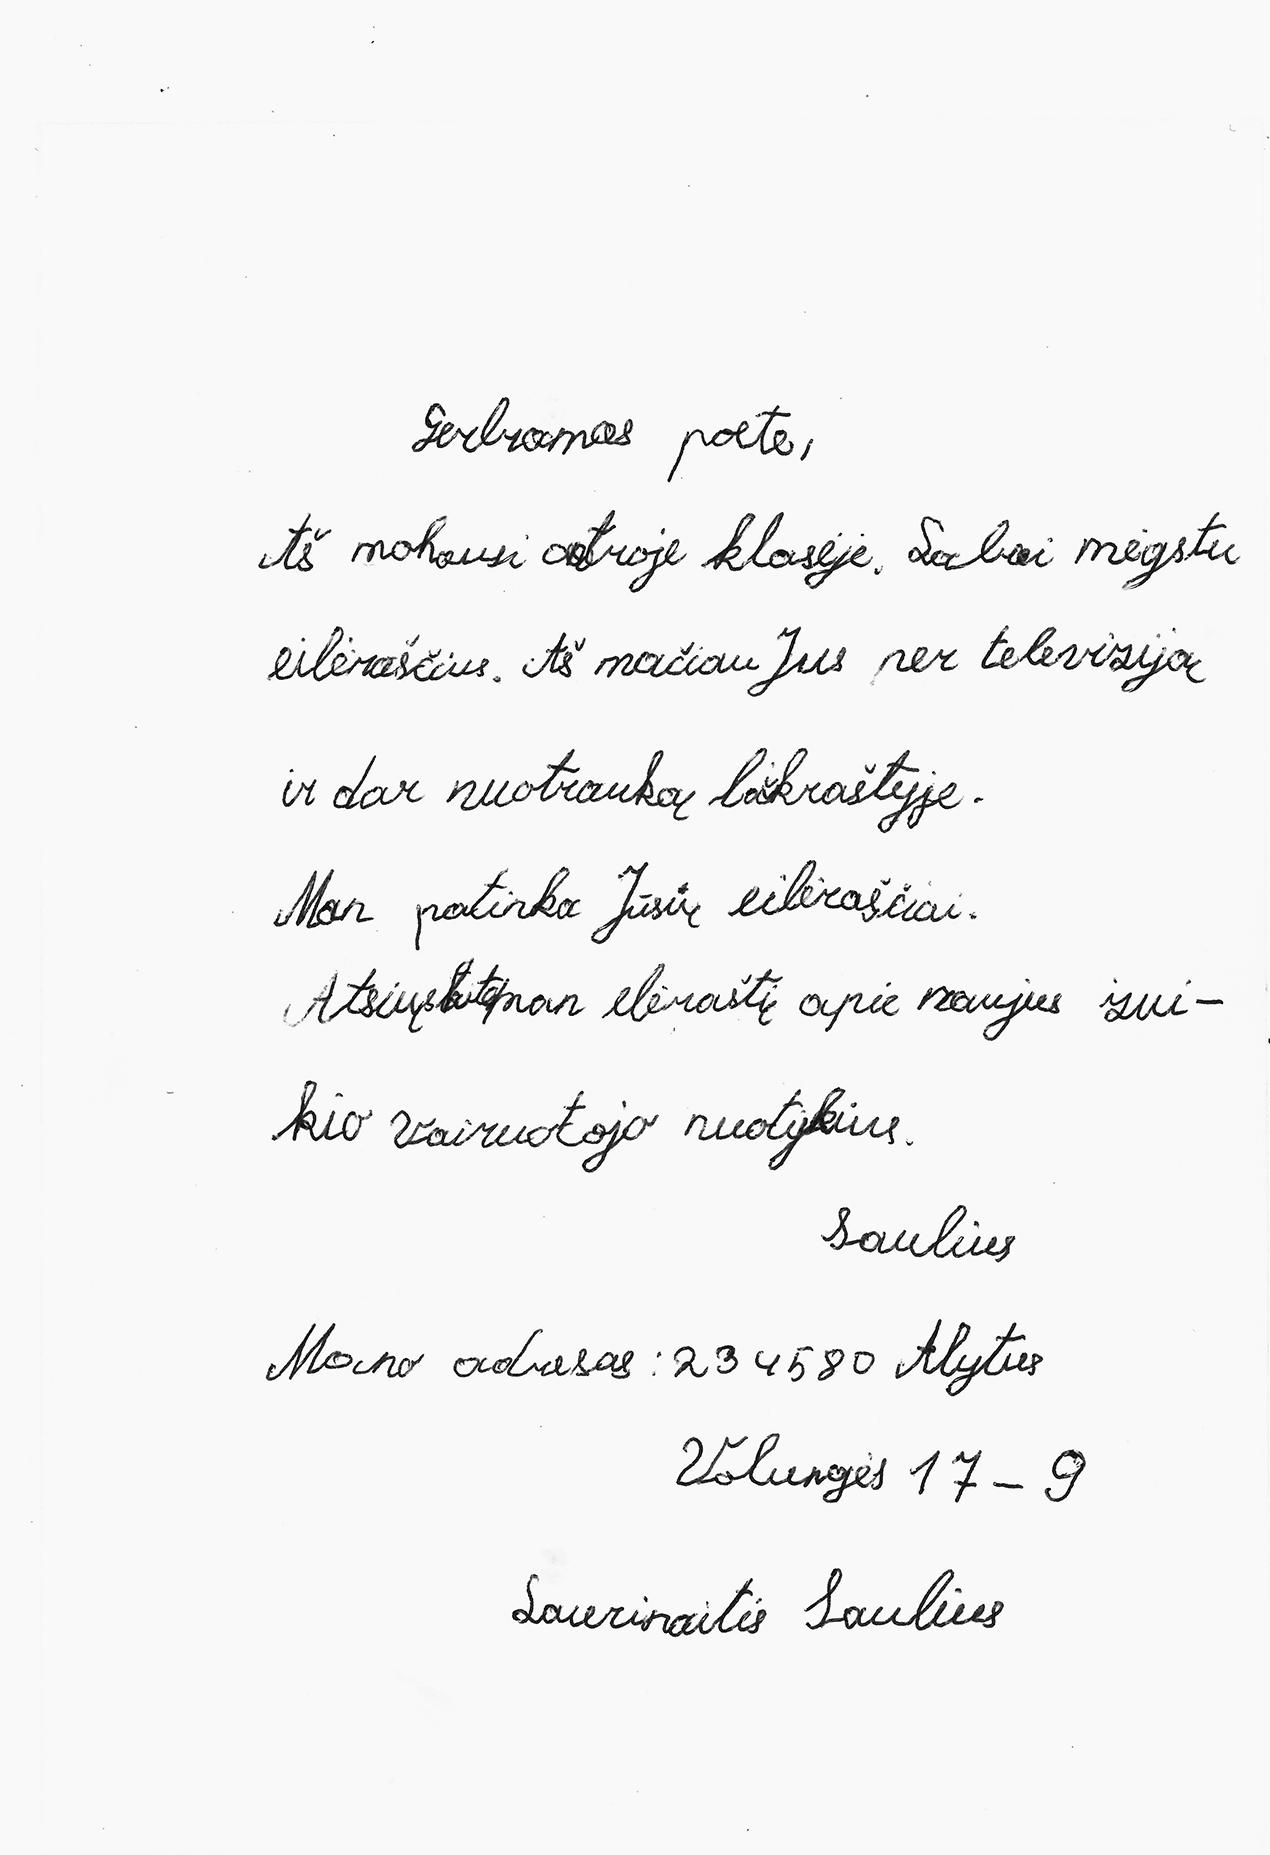 Gerbiamas poete,
Aš mokausi antroje klasėje. Labai mėgstu
eilėraščius. Aš mačiau Jus per televiziją
ir dar nuotrauką laikraštyje.
Man patinka Jūsų eilėraščiai.
Atsiųskite man elėraštį apie naujus zui-
kio vairuotojo nuotykius.
Saulius
Mano adresas: 234580 Alytus
Volungės 17-9
Laurinaitis Saulius